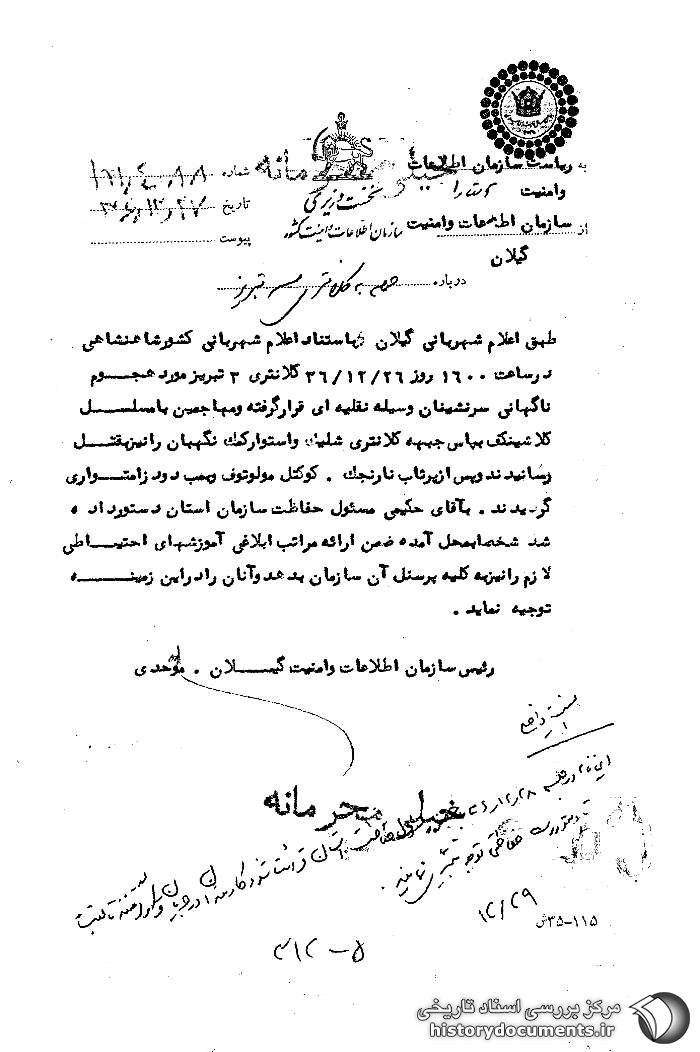 خیلی محرمانه
به ریاست سازمان اطلاعات وامنیت آستارا
از سازمان اطلاعات وامنیت گیلان
نخست وزیری
سازمان اطلاعات و امنیت کشور
شماره
تاریخ
پیوست
درباره حمله به کلانتری ۳ تبریز
طبق اعلام شهربانی گیلان باستناد اعلام شهربانی کشورشاهنشاهی
درساعت ۱۶۰۰ روز ۳۶/۱۲/۲۶ کلانتری ۳ تبریز مورد هجوم
ناگهانی سرنشینان وسیله نقلیه ای قرارگرفته ومهاجمین بامسلسل
کلاشینکف بپاس جبهه کلانتری شلیک واستوارکمک نگهبان رانیزبقتل
رسانیدند وپس ازپرتاب نارنجک . کوکتل مولوتوف وبمب دود زامتواری
گردیدند . بآقای حکیمی مسئول حفاظت سازمان استان دستورداده
شد شخصابمحل آمده ضمن ارائه مراتب ابلاغی آموزشهای احتیاطی
لازم رانیزبه کلیه پرسنل آن سازمان بدهد وآنان رادراین زمینه
توجیه نماید .
رئیس سازمان اطلاعات وامنیت گیلان . موحدی
خیلی محرمانه
۱۲/۲۹
۳۵-۱۱۵ش
۳۱۲-۵
مرکز بررسی اسناد تاریخی
historydocuments.ir